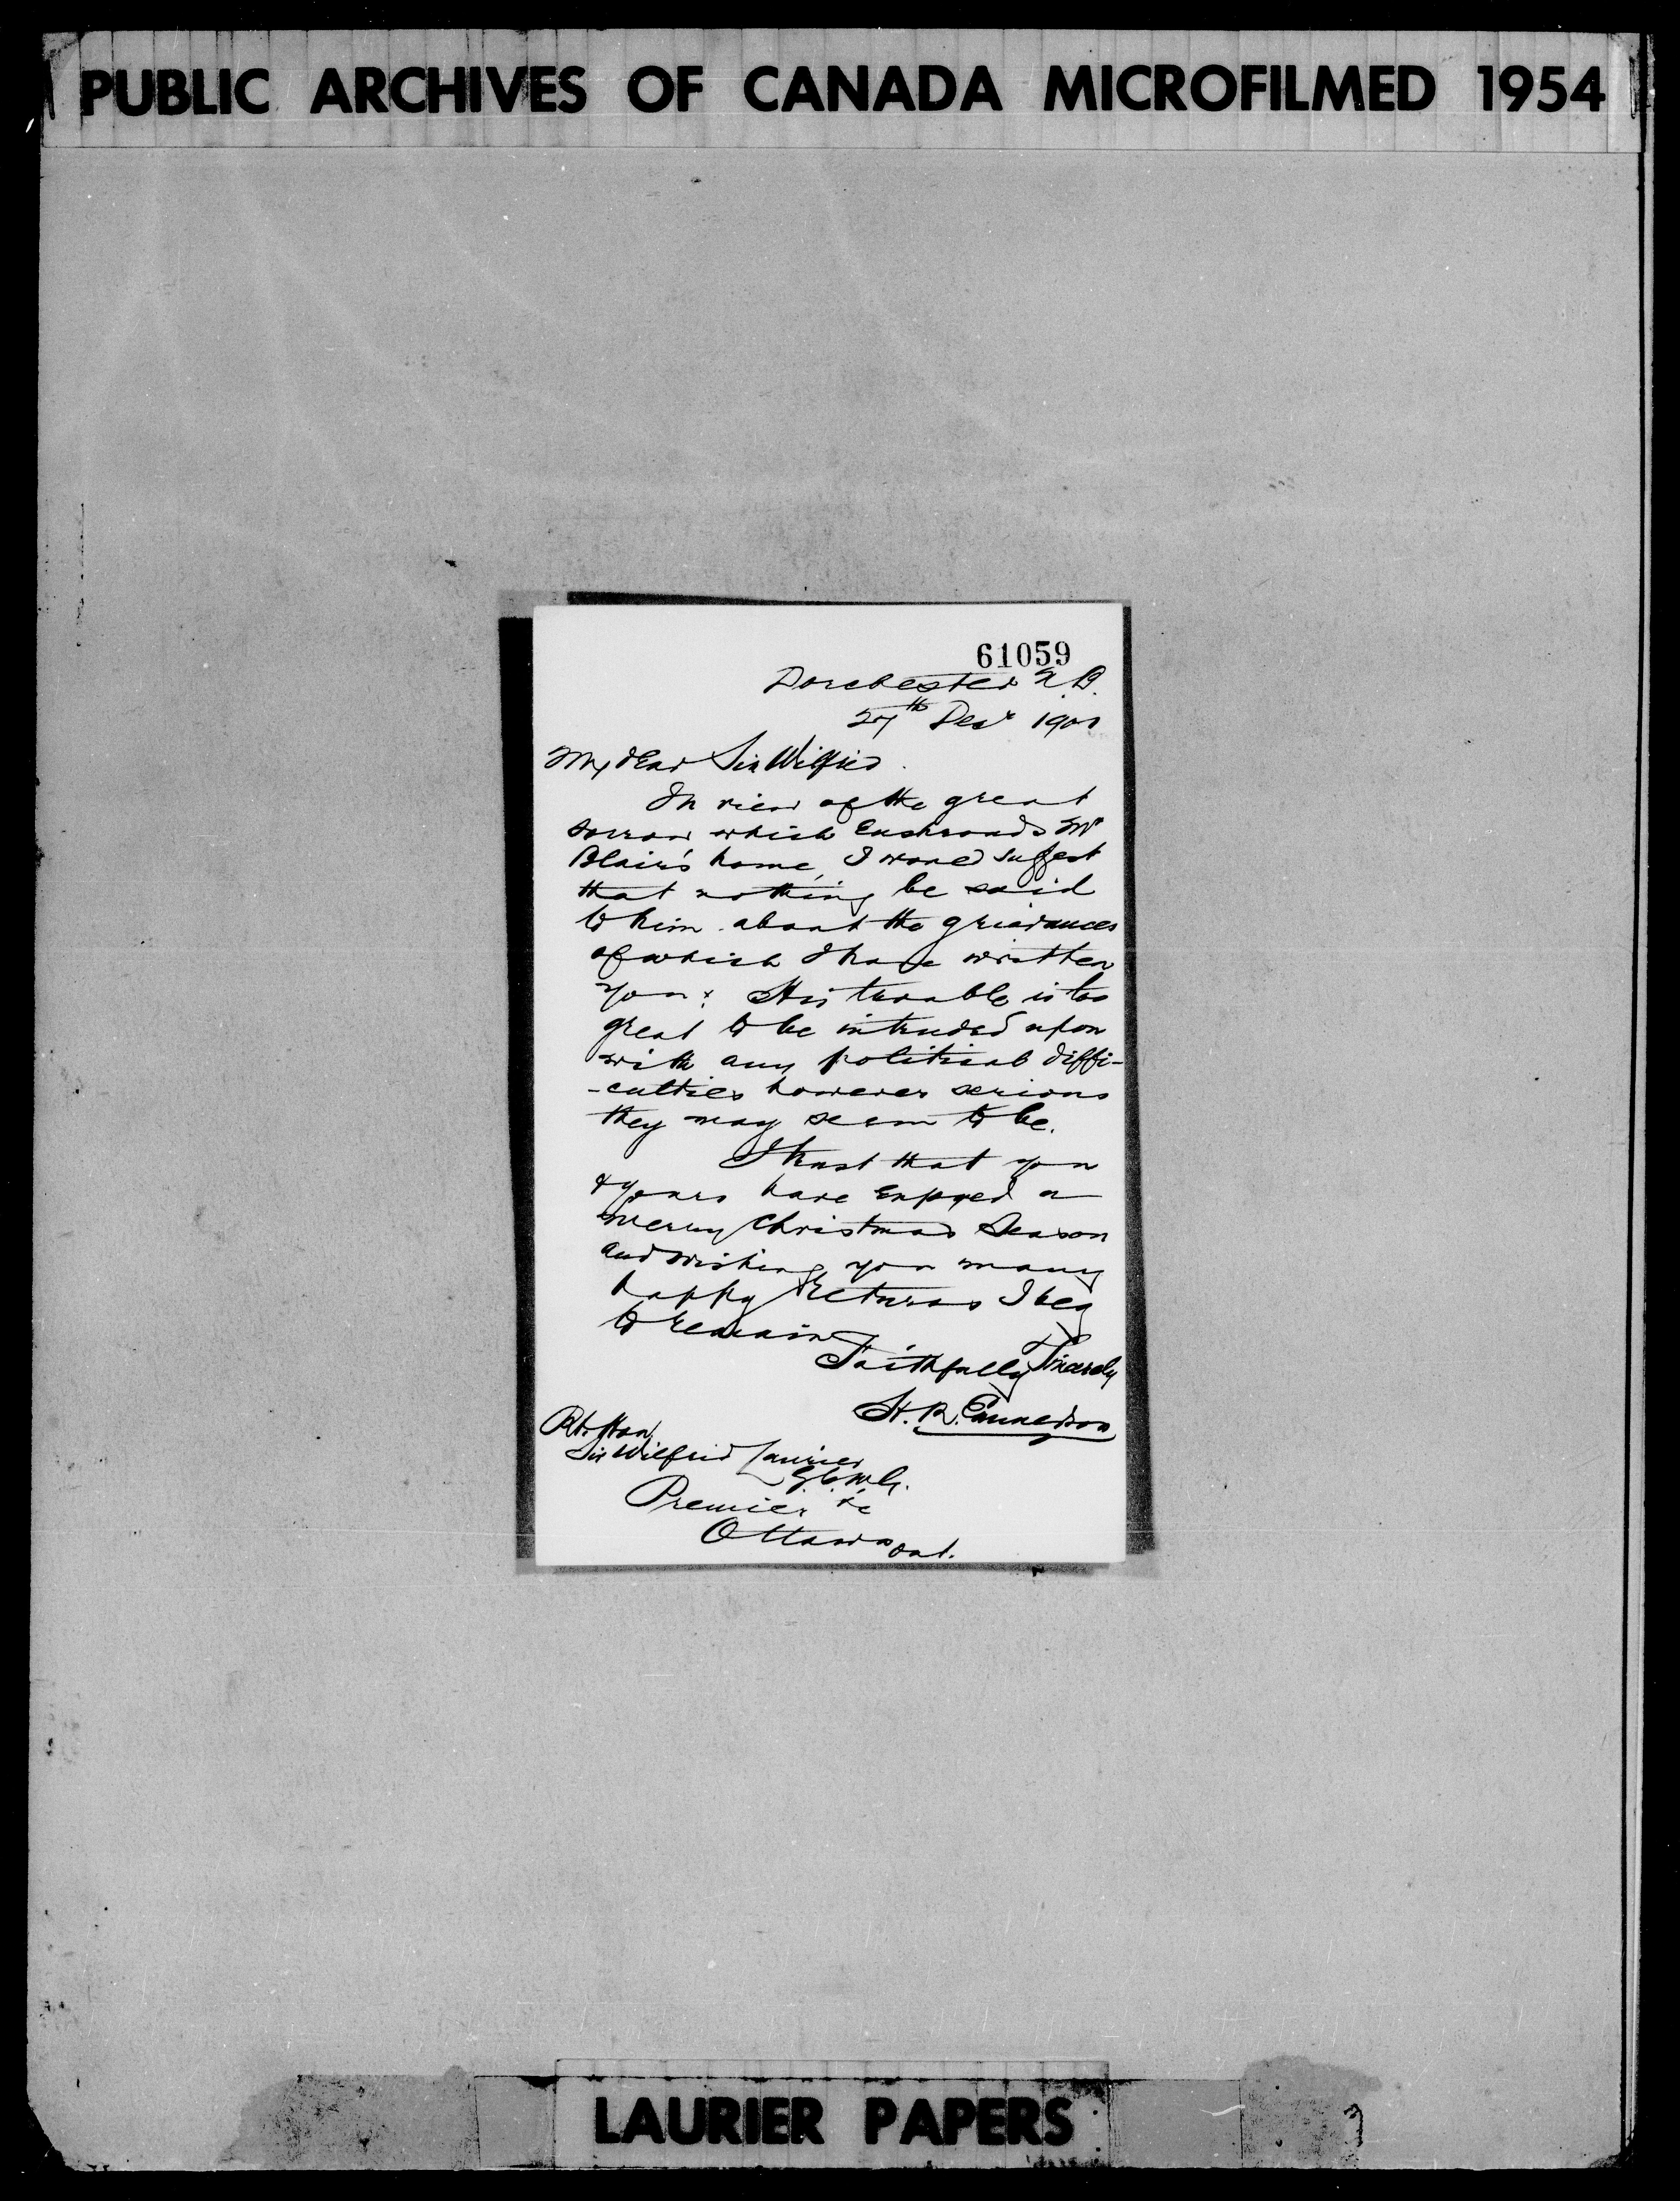 PUBLIC ARCHIVES OF CANADA MICROFILMED 1954
61059
Dorchester N.B.
27th Decr 1901
My dear Sir Wilfrid.
In view of the great
sorrow which enshrouds Mr
Blair's home, I would suggest
that nothing be said
to him about the grievances
of which I have written
you: His trouble is too
great to be intruded upon
with any political diffi-
-culties however serious
they may seem to be.
I trust that you
& yours have enjoyed a
merry Christmas Season
and wishing you many
happy returns I beg
to remain
Faithfully & Sincerely
H. R. Emmerson
Rt. Hon.
Sir Wilfrid Laurier
G.C.M.G.
Premier &c
Ottawa Ont.
LAURIER PAPERS